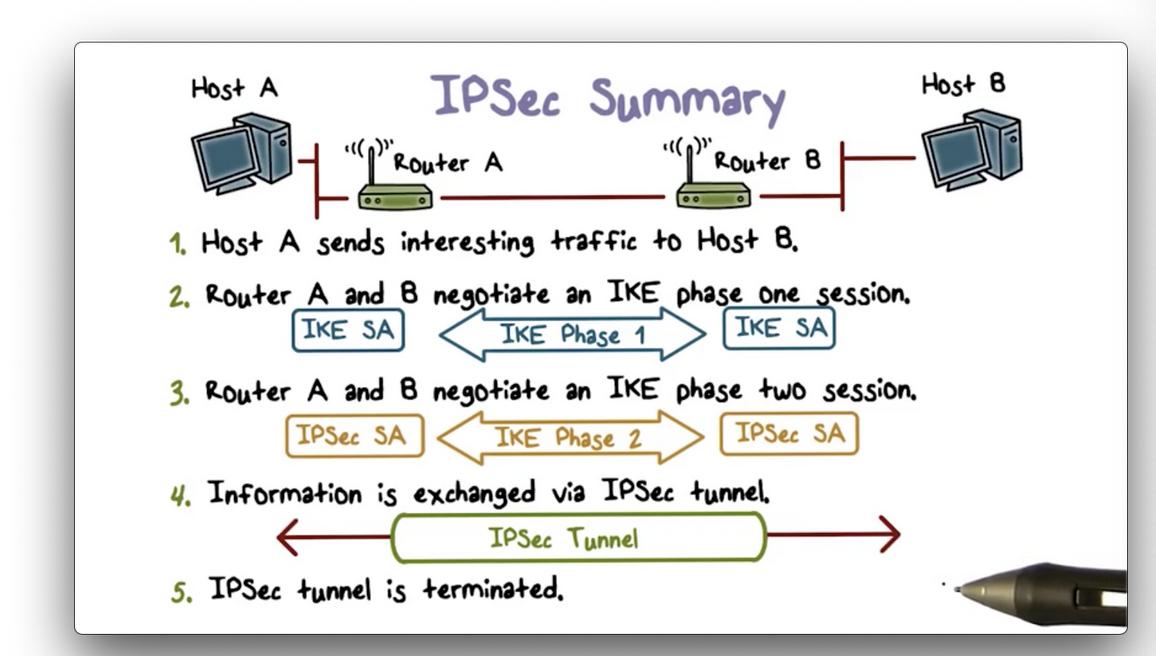 IPSec Summary
Host A
Host B
Router A
Router B
1. Host A sends interesting traffic to Host B.
2. Router A and B negotiate an IKE phase one session.
IKE SA
IKE Phase 1
IKE SA
3. Router A and B negotiate an IKE phase two session.
IPSec SA
IKE Phase 2
IPSec SA
4. Information is exchanged via IPSec tunnel.
IPSec Tunnel
5. IPSec tunnel is terminated.